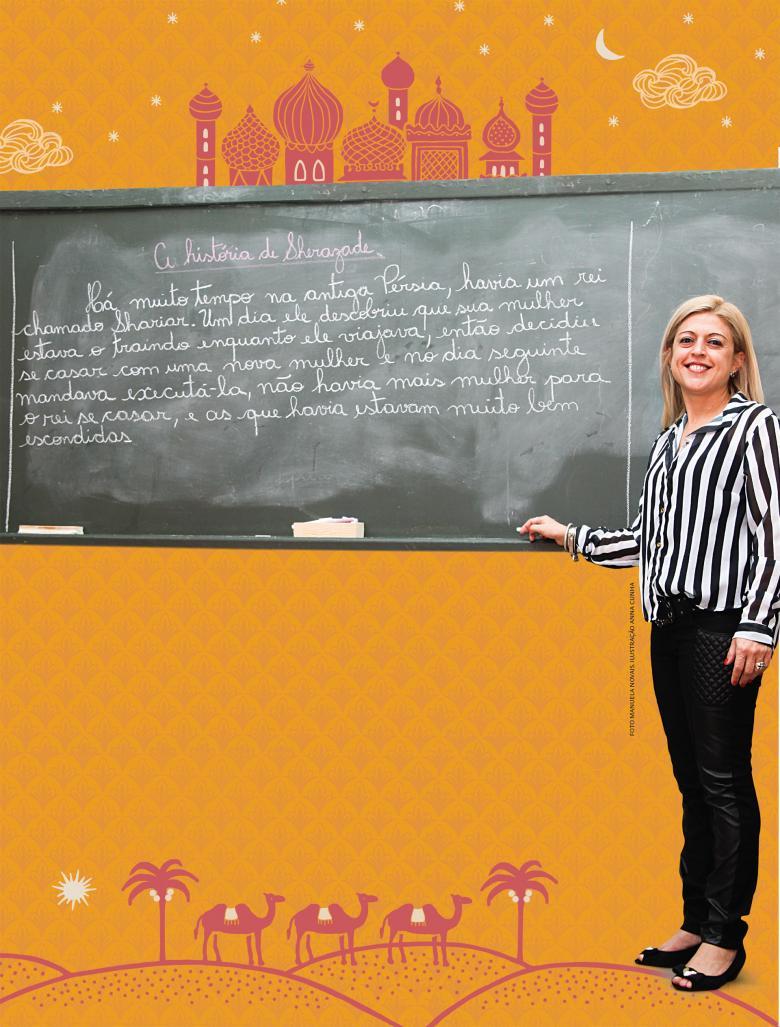 A história de Sherazade
Há muito tempo na antiga Pérsia, havia um rei
chamado Shariar. Um dia ele descobriu que sua mulher
estava o traindo enquanto ele viajava, então decidiu
se casar com uma nova mulher e no dia seguinte
mandava executá-la, não havia mais mulher para
o rei se casar, e as que havia estavam muito bem
escondidas
FOTO MANUELA NOVAIS. ILUSTRAÇÃO ANNA CUNHA